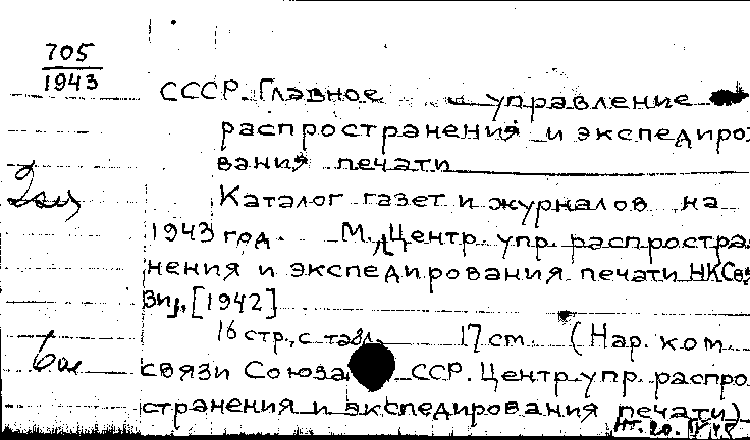 705
1943
СССР. Главное управление
распространения и экспедиро-
вания печати
Каталог газет и журналов на
1943 год. М., Центр. упр. распростра-
нения и экспедирования печати НКСвя-
зи, [1942]
16 стр., с табл. 17 cm. (Нар. ком.
связи Союза ССР. Центр. упр. распро-
странения и экспедирования печати)